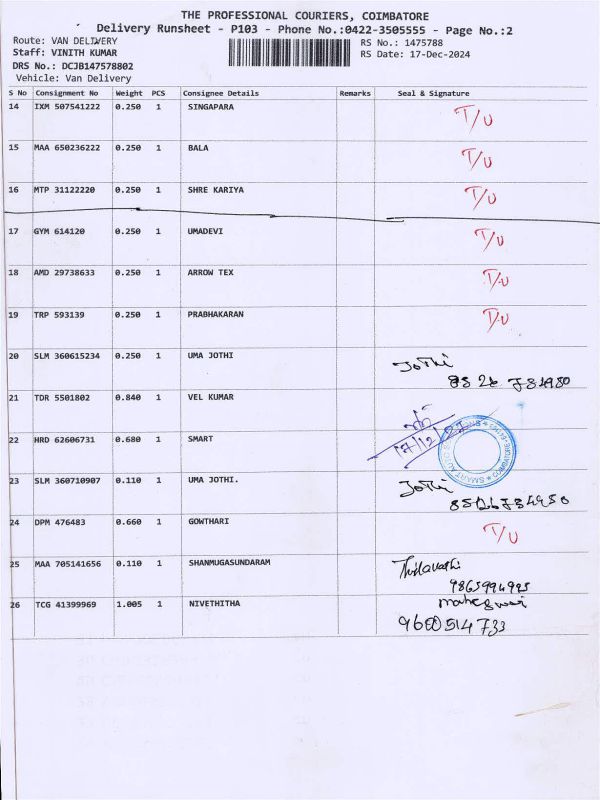 THE PROFESSIONAL COURIERS, COIMBATORE
Delivery Runsheet - P103 - Phone No.:0422-3505555 - Page No.:2
Route: VAN DELIVERY
RS No.: 1475788
Staff: VINITH KUMAR
RS Date: 17-Dec-2024
DRS No.: DCJB147578802
Vehicle: Van Delivery
S No Consignment No Weight PCS Consignee Details Remarks Seal & Signature
14 IXM 507541222 0.250 1 SINGAPARA T/U
15 MAA 650236222 0.250 1 BALA T/U
16 MTP 31122220 0.250 1 SHRE KARIYA T/U
17 GYM 614120 0.250 1 UMADEVI T/U
18 AMD 29738633 0.250 1 ARROW TEX T/U
19 TRP 593139 0.250 1 PRABHAKARAN T/U
20 SLM 360615234 0.250 1 UMA JOTHI Jothi
21 TDR 5501802 0.840 1 VEL KUMAR
22 HRD 62606731 0.680 1 SMART
23 SLM 360710907 0.110 1 UMA JOTHI. Jothi
24 DPM 476483 0.660 1 GOWTHARI T/U
25 MAA 705141656 0.110 1 SHANMUGASUNDARAM
26 TCG 41399969 1.005 1 NIVETHITHA
9600514733